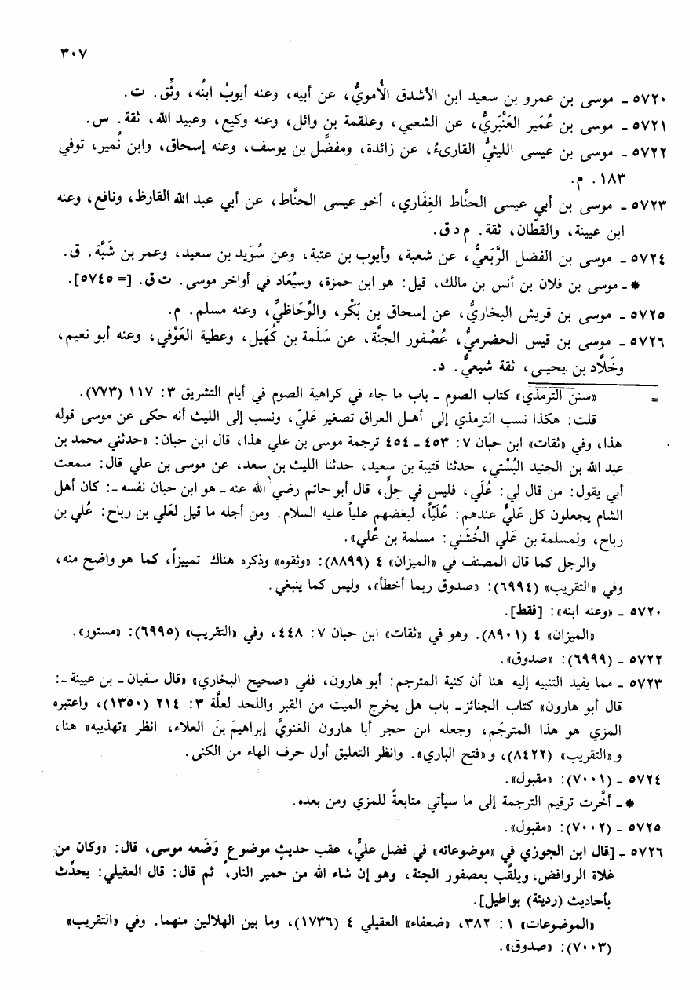 ٣٠٧
٥٧٢٠ ـ موسى بن عمرو بن سعيد ابن الأشدق الأُمويُّ، عن أبيه، وعنه أيوبُ ابنُه، وثِّق. ت.
٥٧٢١ ـ موسى بن عُمَير العَنْبَريُّ، عن الشعبي، وعلقمة بن وائل، وعنه وكيع، وعبيد الله، ثقة. س.
٥٧٢٢ ـ موسى بن عيسى الليثيُّ القارىءُ، عن زائدة، ومفضَّل بن يوسف، وعنه إسحاق، وابن نُمير، توفي
١٨٣. م.
٥٧٢٣ ـ موسى بن أبي عيسى الحنَّاط الغِفَاري، أخو عيسى الحنَّاط، عن أبي عبد الله القارظ، ونافع، وعنه
ابن عيينة، والقطَّان، ثقة. م د ق.
٥٧٢٤ ـ موسى بن الفضل الرَّبَعيُّ، عن شعبة، وأيوب بن عتبة، وعن سُوَيد بن سعيد، وعمر بن شَبَّة. ق.
* ـ موسى بن فلان بن أنس بن مالك، قيل: هو ابن حمزة، وسيُعَاد في أواخر موسى. ت ق. [= ٥٧٤٥].
٥٧٢٥ ـ موسى بن قريش البخاريُّ، عن إسحاق بن بَكْر، والوُحَاظيِّ، وعنه مسلم. م.
٥٧٢٦ ـ موسى بن قيس الحضرميُّ، عُصْفور الجنَّة، عن سَلَمة بن كُهَيل، وعطية العَوْفي، وعنه أبو نعيم،
وخَلَّاد بن يحيى، ثقة شيعيٌّ. د.
= «سنن الترمذي» كتاب الصوم ـ باب ما جاء في كراهية الصوم في أيام التشريق ٣: ١١٧ (٧٧٣).
قلت: هكذا نسب الترمذي إلى أهل العراق تصغير عَليّ، ونسب إلى الليث أنه حكى عن موسى قوله
هذا، وفي «ثقات» ابن حبان ٧: ٤٥٣ ـ ٤٥٤ ترجمة موسى بن علي هذا، قال ابن حبان: «حدثني محمد بن
عبد الله بن الجنيد البُسْتي، حدثنا قتيبة بن سعيد، حدثنا الليث بن سعد، عن موسى بن علي قال: سمعت
أبي يقول: من قال لي: عُلَي، فليس في حِلٍّ، قال أبو حاتم رضي الله عنه ـ هو ابن حبان نفسه ـ: كان أهل
الشام يجعلون كل عَليٍّ عندهم: عُلَيّاً، لبغضهم علياً عليه السلام. ومن أجله ما قيل لعَلي بن رباح: عُلي بن
رباح، ولمسلمة بن عَلي الخُشَني: مسلمة بن عُلي».
والرجل كما قال المصنف في «الميزان» ٤ (٨٨٩٩): «وثقوه» وذكره هناك تمييزاً، كما هو واضح منه،
وفي «التقريب» (٦٩٩٤): «صدوق ربما أخطأ»، وليس كما ينبغي.
٥٧٢٠ ـ «وعنه ابنه»: [فقط].
«الميزان» ٤ (٨٩٠١). وهو في «ثقات» ابن حبان ٧: ٤٤٨، وفي «التقريب» (٦٩٩٥): «مستور».
٥٧٢٢ ـ (٦٩٩٩): «صدوق».
٥٧٢٣ ـ مما يفيد التنبيه إليه هنا أن كنية المترجم: أبو هارون، ففي «صحيح البخاري» «قال سفيان ـ بن عيينة ـ:
قال أبو هارون» كتاب الجنائز ـ باب هل يخرج الميت من القبر واللحد لعلَّة ٣: ٢١٤ (١٣٥٠)، واعتبره
المزي هو هذا المترجَم، وجعله ابن حجر أبا هارون الغنويَّ إبراهيمَ بنَ العلاء، انظر «تهذيبه» هنا،
و«التقريب» (٨٤٢٢)، و«فتح الباري». وانظر التعليق أول حرف الهاء من الكنى.
٥٧٢٤ ـ (٧٠٠١): «مقبول».
* ـ أخَّرت ترقيم الترجمة إلى ما سيأتي متابعةً للمزي ومن بعده.
٥٧٢٥ ـ (٧٠٠٢): «مقبول».
٥٧٢٦ ـ [قال ابن الجوزي في «موضوعاته» في فضل عليٍّ، عقب حديثٍ موضوعٍ وَضَعه موسى، قال: «وكان من
غلاة الروافض، ويلقَّب بعصفور الجنة، وهو إن شاء الله من حمير النار، ثم قال: قال العقيلي: يحدِّث
بأحاديث (رديئة) بواطيل].
«الموضوعات» ١: ٣٨٢، «ضعفاء» العقيلي ٤ (١٧٣٦)، وما بين الهلالين منهما. وفي «التقريب»
(٧٠٠٣): «صدوق».